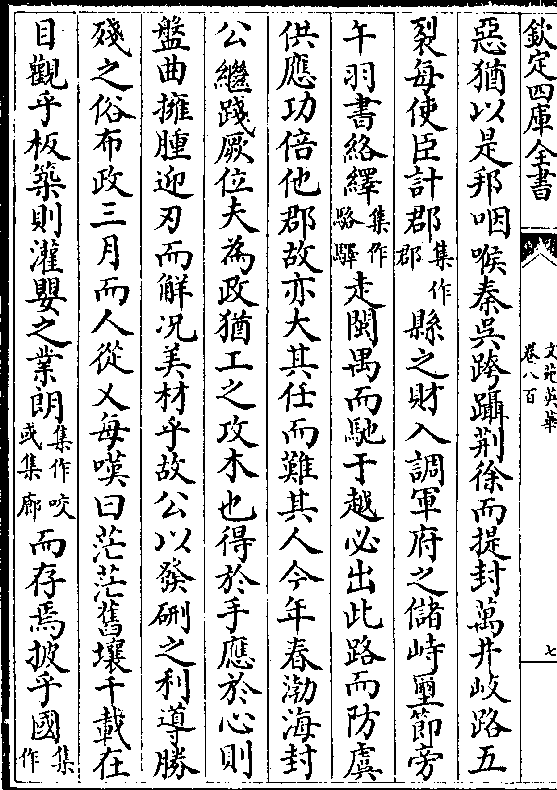 欽定四庫全書
文苑英華
卷八百
七
惡猶以是邦咽喉秦吳跨躡荆徐而提封萬井岐路五
裂每使臣計郡集作郡縣之財入調軍府之儲峙璽節旁
午羽書絡繹集作駱驛走閩禺而馳于越必出此路而防虞
供應功倍他郡故亦大其任而難其人今年春渤海封
公繼踐厥位夫為政猶工之攻木也得於手應於心則
盤曲擁腫迎刃而解况美材乎故公以發硎之利導勝
殘之俗布政三月而人從乂每嘆曰茫茫舊壤千載在
目觀乎板築則灌嬰之業朗集作咬或集廊而存焉披乎國集作